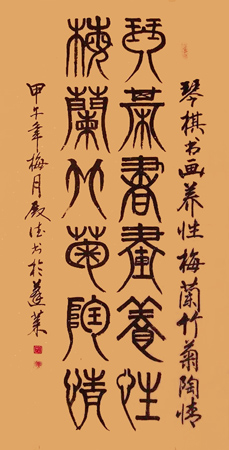 琴棋书画养性梅兰竹菊陶情
琴棊書畫養性
梅蘭竹菊陶情
甲午年梅月殿法书於蓬莱